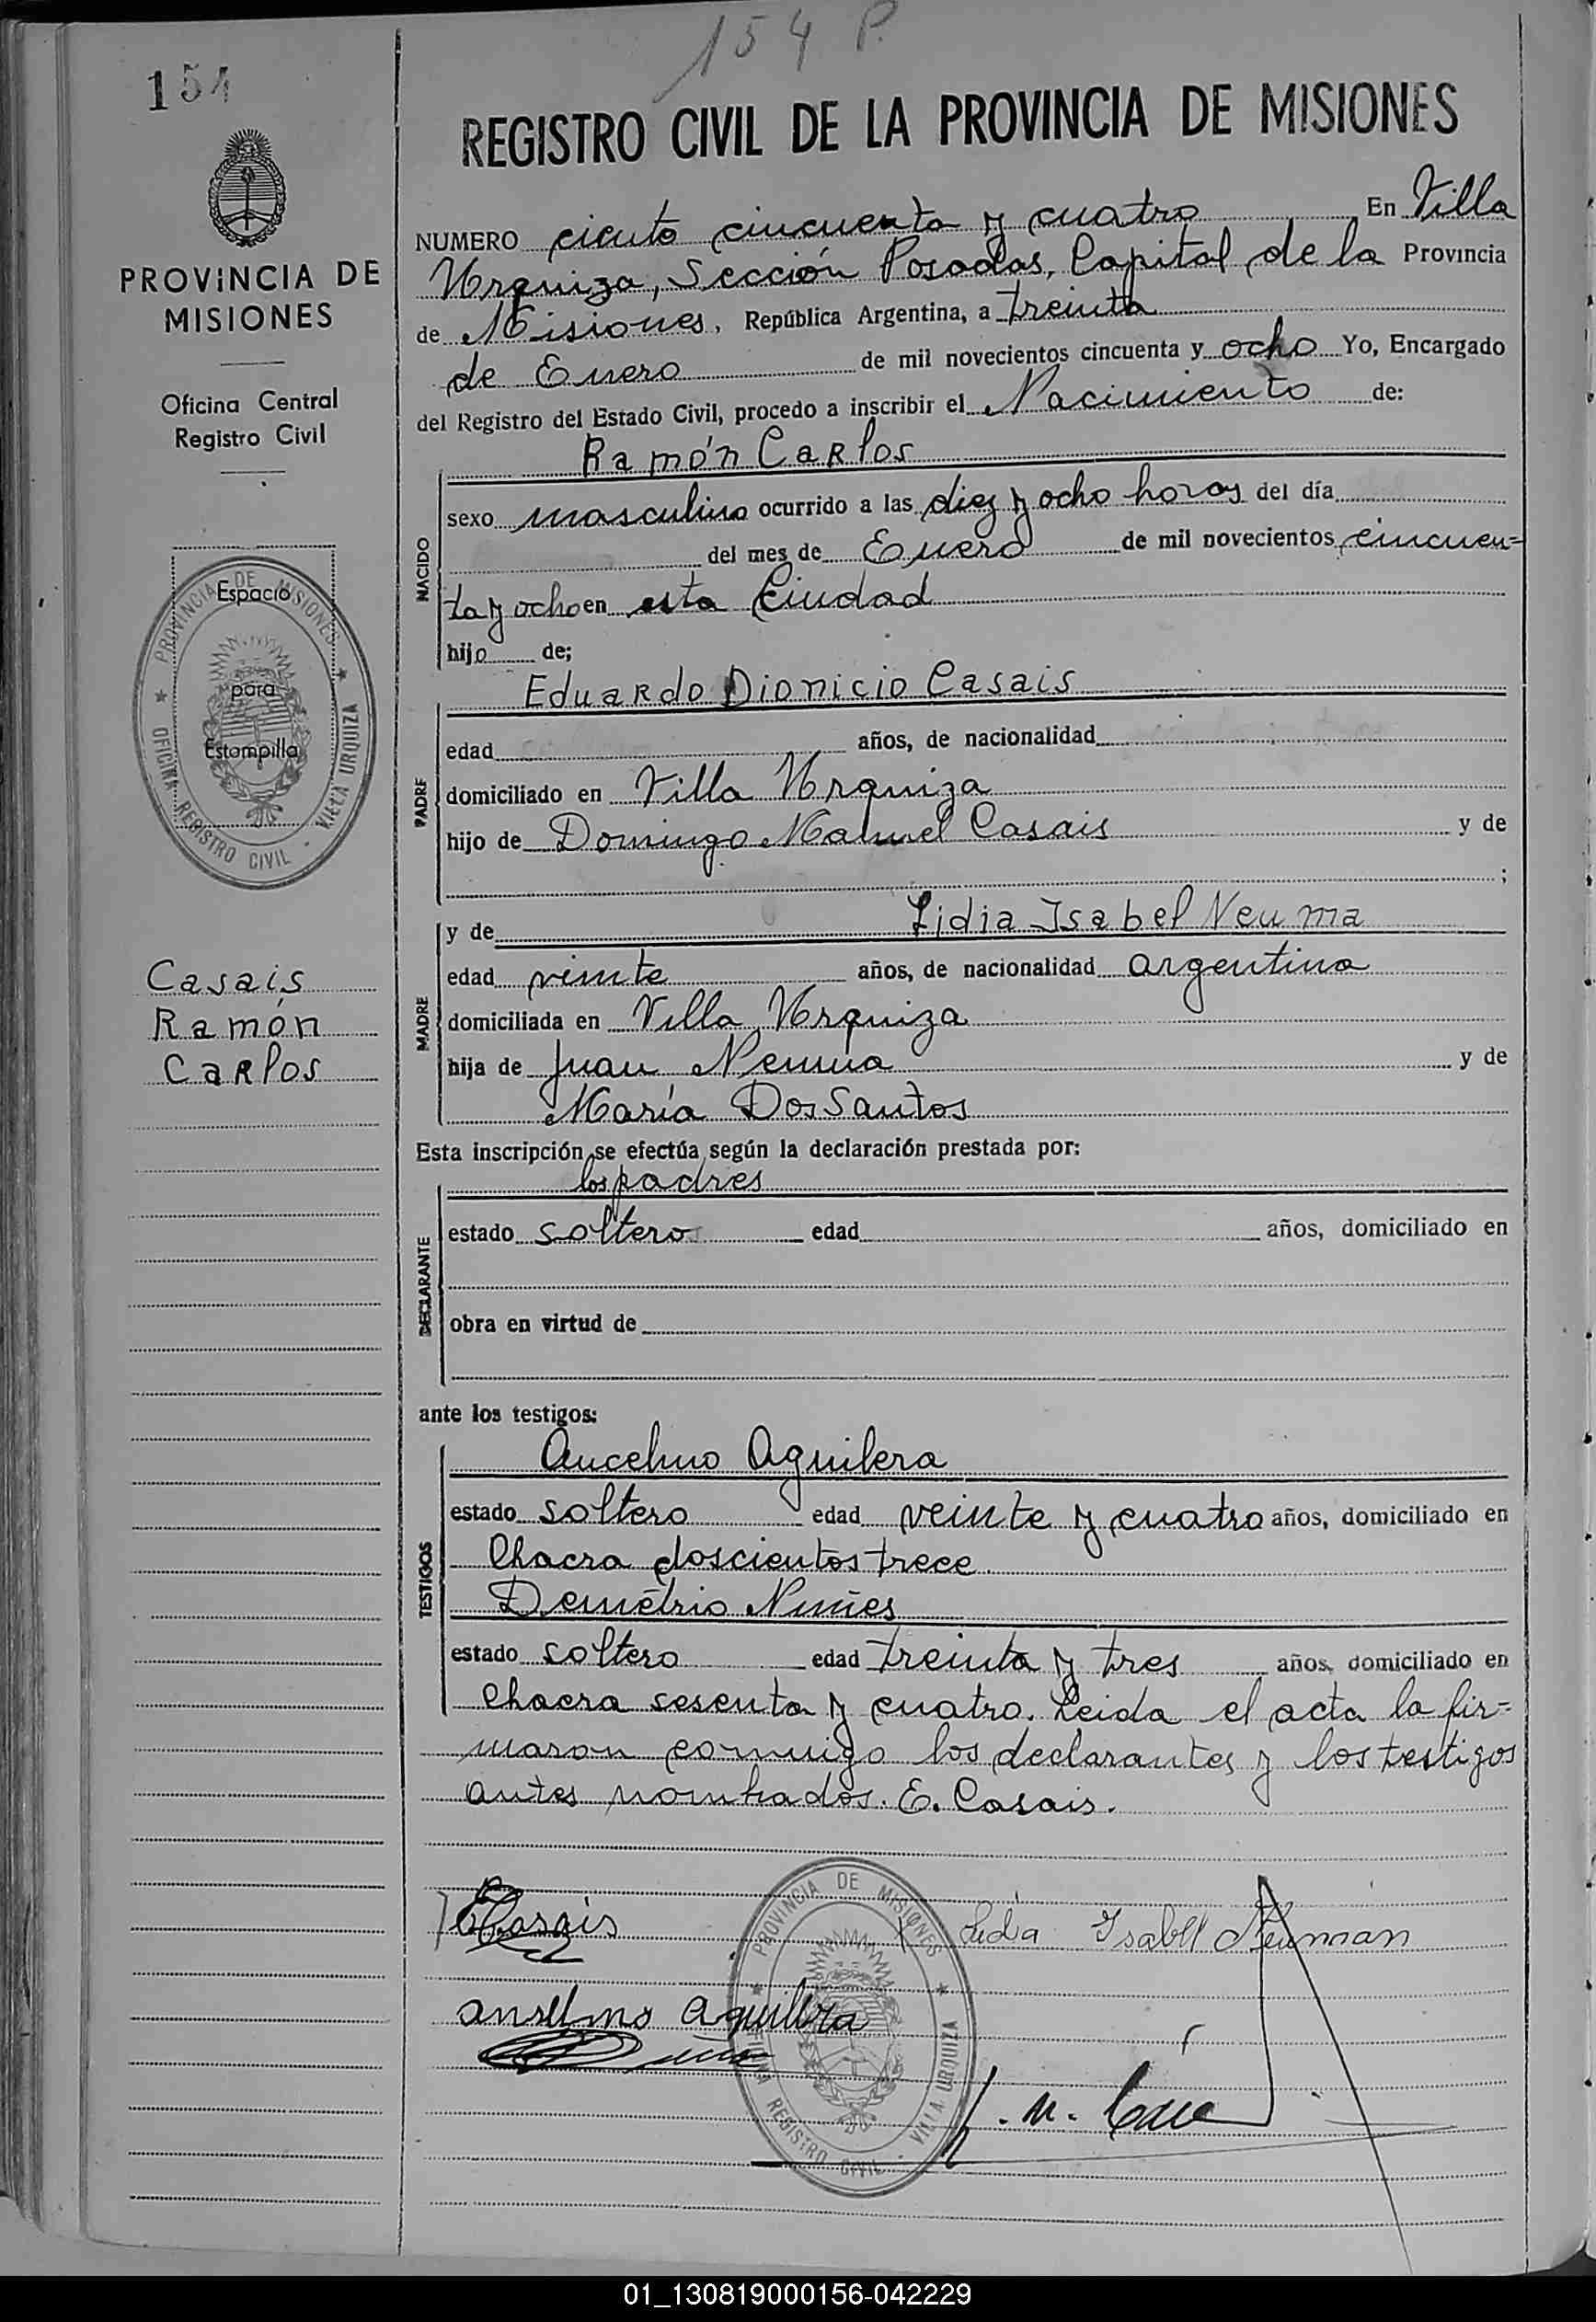 154 P.
154
REGISTRO CIVIL DE LA PROVINCIA DE MISIONES
PROVINCIA DE
MISIONES
Oficina Central
Registro Civil
PROVINCIA DE MISIONES
OFICINA REGISTRO CIVIL - VILLA URQUIZA
Espacio
para
Estampilla
Casais
Ramón
Carlos
NUMERO ciento cincuenta y cuatro En Villa
Urquiza, Sección Posadas, Capital de la Provincia
de Misiones, República Argentina, a treinta
de Enero de mil novecientos cincuenta y ocho Yo, Encargado
del Registro del Estado Civil, procedo a inscribir el Nacimiento de:
Ramón Carlos
NACIDO
sexo masculino ocurrido a las diez y ocho horas del día
del mes de Enero de mil novecientos cincuen=
ta y ocho en esta Ciudad
hijo de;
Eduardo Dionicio Casais
PADRE
edad años, de nacionalidad
domiciliado en Villa Urquiza
hijo de Domingo Manuel Casais y de
;
y de Lidia Isabel Neuma
MADRE
edad veinte años, de nacionalidad argentina
domiciliada en Villa Urquiza
hija de Juan Neuma y de
María Dos Santos
Esta inscripción se efectúa según la declaración prestada por:
los padres
DECLARANTE
estado soltero edad años, domiciliado en
obra en virtud de
ante los testigos:
Ancelmo Aguilera
TESTIGOS
estado soltero edad veinte y cuatro años, domiciliado en
Chacra doscientos trece
Demétrio Nuñes
estado soltero edad treinta y tres años, domiciliado en
Chacra sesenta y cuatro. Leida el acta la fir=
maron conmigo los declarantes y los testigos
antes nombrados. E. Casais.
ECasais
Lidia Isabel Neuman
anselmo aguilera
PROVINCIA DE MISIONES
OFICINA REGISTRO CIVIL - VILLA URQUIZA
01_130819000156-042229